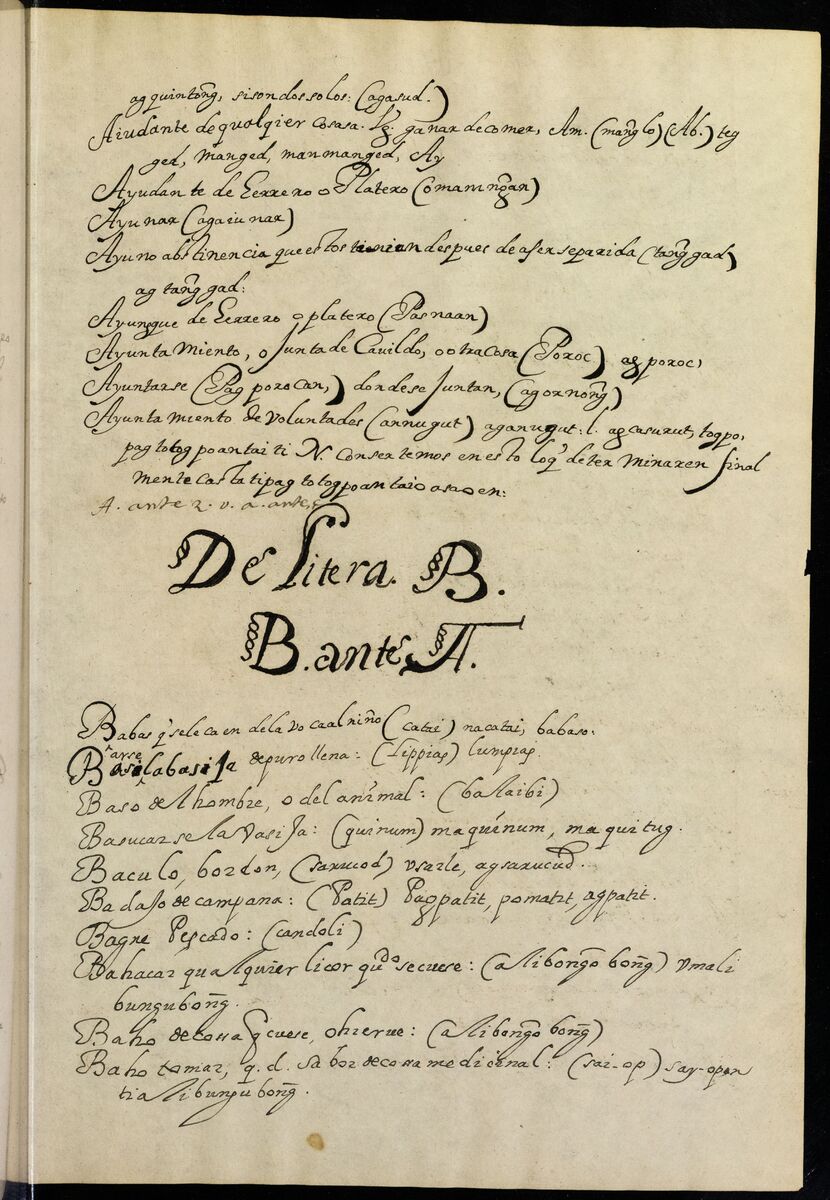 ag quintong̃, sison dos solos: (agasud.)
Aiudante de qualqier cosasa. Lg̃. ganar de comer, Am. (mang̃lo) (Ab.) teg
ged, manged, manmanged, Ay
Ayudante de herrero o Platero (omamng̃an)
Ayunar (agaiunar)
Ayuno abstinencia que estos tenian despues de aser separida (tang̃gad)
ag tang̃gad:
Ayunque de herrero o platero (Pasnaan)
Ayuntamiento, o Junta de Cauildo, o otra cosa (Poroc) ag poroc,
Ayuntarse (Pag porocan,) donde se Juntan, (agornong̃)
Ayuntamiento de voluntades (annugut) aganugut: l. ag casurut, togpo,
pagtotogpoantai ti N. consertemos en esto loq̃ determinaren final
mente casta tipagtotogpoantaio asaoen:
A. ante z. v. a. ante ç
De Litera. B.
B. ante A.
Babas q̃ sele caen dela vocaal niño (catai) nacatai, babaso.
arse
Basilabasija depuro llena: (Lippias) lumpias.
Baso del hombre, o del animal: (balaibi)
Basucarse la Vasija: (quinum) maquinum, maquitug.
Baculo, bordon, (sarucod) vsarle, agsarucud.
Badajo de campana: (Patit) Pagpatit, pomatit, agpatit.
Bagre Pescado: (candoli)
Bahacar qualquier licor qu^do se cuese: (alibong̃o bong̃) vmali
bungubong̃.
Baho de cossa q̃ cuese, ohierue: (alibong̃o bong̃)
Baho tomar, q. d. sabor de cossa medicinal: (sai-op) say-open
ti alibungubong̃.